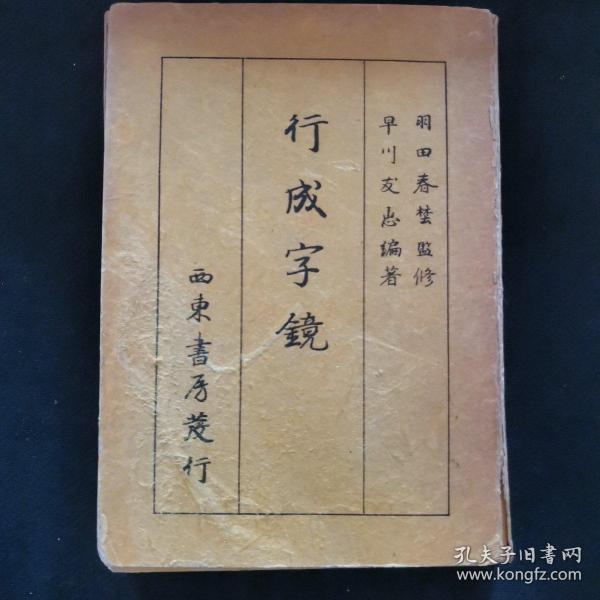 羽田春埜監修
早川友忠編著
行成字鏡
西東書房發行
孔夫子旧书网
www.kongfz.com